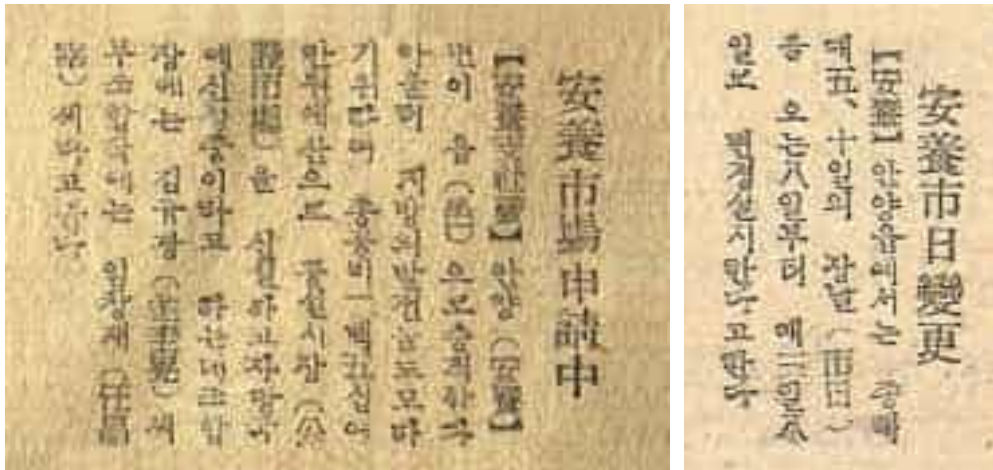 安養市場申請中
【安養支社發】 안양(安養)
면이 읍(邑)으로승격한후
지방의발전을도모하
기위하여 총공비一백五십여
만원예산으로 공설시장(公
設市場)을 신설하고자당국
에신청중이라고 하는데조합
장에는 씨
부조합장에는 임창재(任昌
宰)씨라고한다
安養市日變更
【安養】안양읍에서는 종래
매五、十일의 장날(市日)
을 오는八일부터 매三일八
일로 변경실시한다고한다